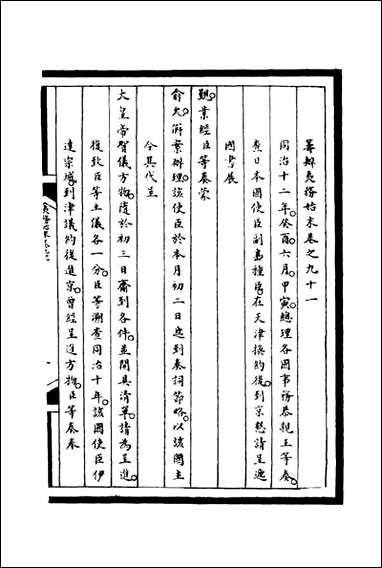 籌辦夷務始末卷之九十一
同治十二年癸酉六月甲寅總理各國事務恭親王等奏
查日本國使臣副島種臣在天津換約後到京懇請呈遞
國書展
覲業經臣等奏蒙
俞允辦理該使臣於本月初二日送到奏詞節略以該國主
令其代呈
大皇帝賀儀方物復於初三日齎到各件並開具清單請為呈進
復致臣等土儀各一分臣等溯查同治十年該國使臣伊
達宗城到津議約後進京曾經呈進方物臣等奏奉